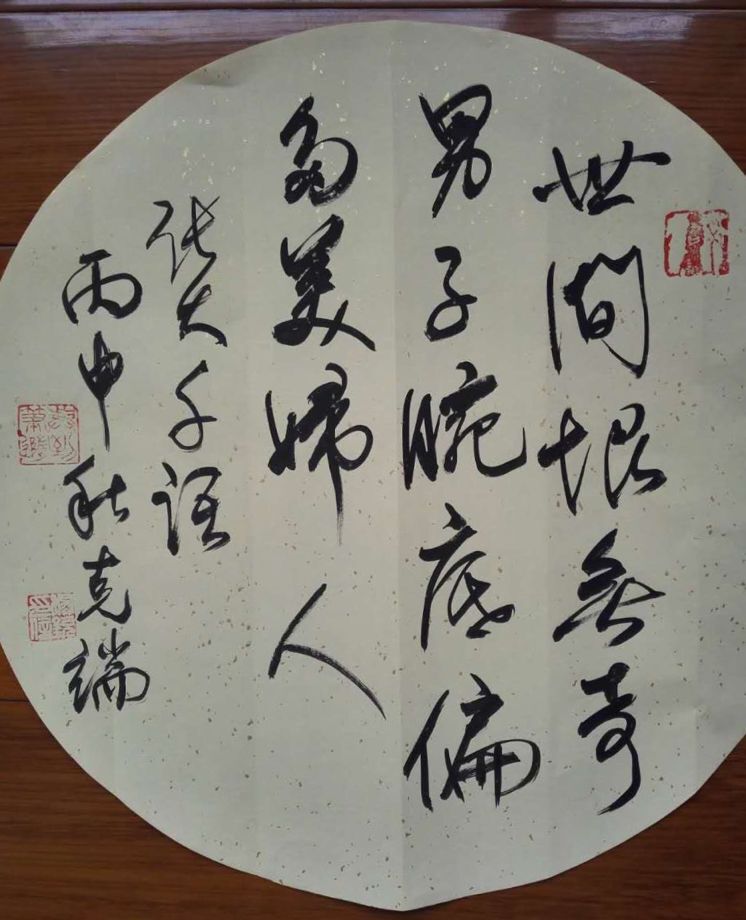 世間恨無奇
男子腕底偏
多美婦人
張大千語
丙申秋克端